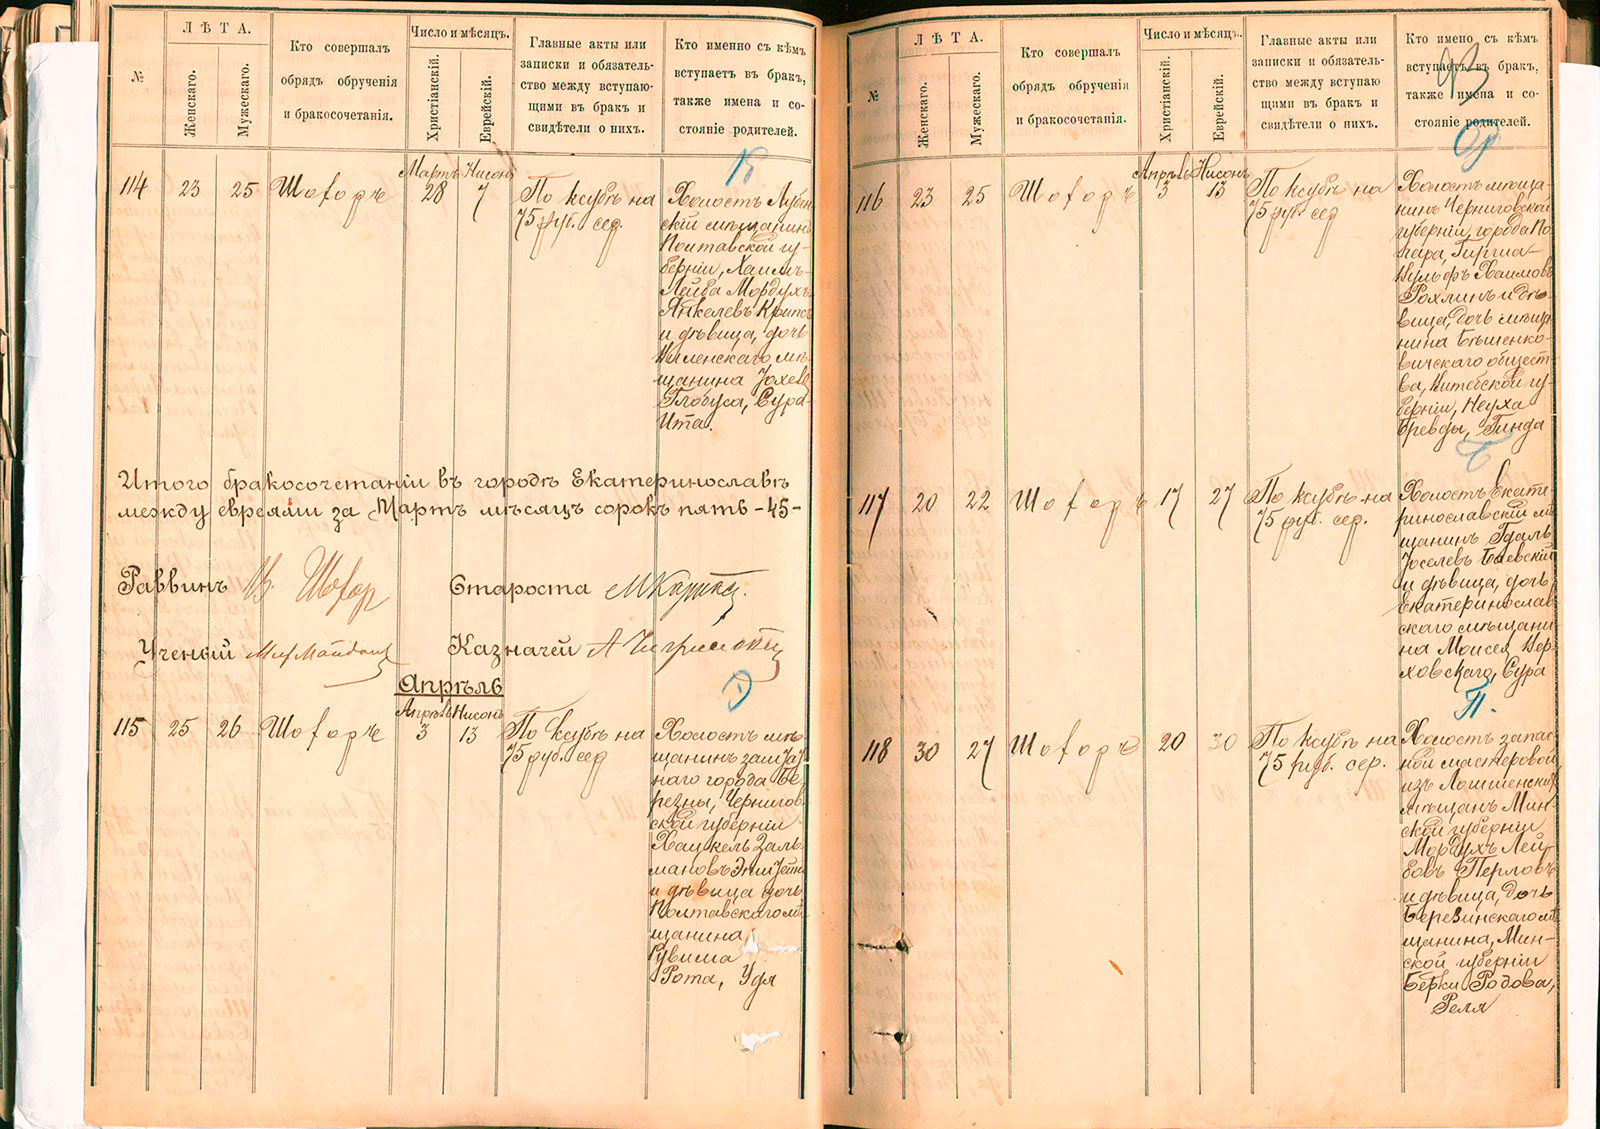 №
ЛѢТА.
Женскаго.
Мужескаго.
Кто совершалъ
обрядъ обрученія
и бракосочетанія.
Число и мѣсяцъ.
Христіанскій.
Еврейскій.
Главные акты или
записки и обязатель-
ство между вступаю-
щими въ бракъ и
свидѣтели о нихъ.
Кто именно съ кѣмъ
вступаетъ въ бракъ,
также имена и со-
стояніе родителей.
К
114 23 25 Шофоръ
Мартъ Нисонъ
28 7
По ксубѣ на
75 руб. сер.
Холостъ Лубен
скій мѣщанинъ
Полтавской гу-
берніи, Хаимъ-
Лейба Мордухъ
Янкелевъ
и дѣвица, дочь
Виленскаго мѣ-
щанина
Глобуса, Сура-
Ита.
Итого бракосочетаній въ городѣ Екатеринославѣ
между евреями за Мартъ мѣсяцъ сорокъ пять -45-
Раввинъ В. Шофор
Староста
Ученый
Казначей
Апрѣль
115 25 26 Шофоръ
Апрѣль Нисонъ
3 13
По ксубѣ на
75 руб. сер
Холостъ мѣ
щанинъ заштат
наго города Бе
резны, Чернигов
ской губерніи
Хацкель Заль
мановъ
и дѣвица дочь
Полтавскаго мѣ
щанина
Рувима
Рота, Удя
№
ЛѢТА.
Женскаго.
Мужескаго.
Кто совершалъ
обрядъ обрученія
и бракосочетанія.
Число и мѣсяцъ.
Христіанскій.
Еврейскій.
Главные акты или
записки и обязатель-
ство между вступаю-
щими въ бракъ и
свидѣтели о нихъ.
Кто имено съ кѣмъ
вступаетъ въ бракъ,
также имена и со-
стояніе родителей.
93
Р
116 23 25 Шофоръ
Апрѣль Нисонъ
3 13
По ксубѣ на
75 руб. сер
Холостъ мѣща-
нинъ Черниговской
губерніи, города По
гара, Гирша-
Вульфъ Хаимовъ
Рохлинъ и дѣ-
вица, дочь мѣща
нина Бѣшенко-
вичскаго общест-
ва, Витебской гу-
берніи, Неуха
Бревды, Гинда
Б
117 20 22 Шофоръ 17 27
По ксубѣ на
75 руб. сер.
Холостъ Екате-
ринославскій мѣ
щанинъ Гдаль
Іоселевъ Баевскій
и дѣвица, дочь
Екатеринослав
скаго мѣщани
на Моисея Вер-
ховскаго, Сура
П.
118 30 27 Шофоръ 20 30
По ксубѣ на
75 руб. сер.
Холостъ запас-
ной мастеровой
изъ Логишенскихъ
мѣщанъ Мин-
ской губерніи
Мордухъ Лей-
бовъ Перловъ
и дѣвица, дочь
Березинскаго мѣ
щанина, Мин-
ской губерніи
Берки Родова,
Реля